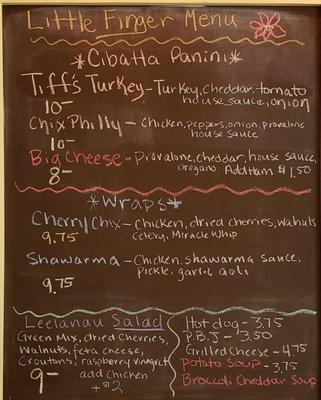 Little Finger Menu
*Cibatta Panini*
Tiff's Turkey - Turkey, cheddar, tomato
house sauce, onion
10-
Chix Philly - Chicken, peppers, onion, provalone
house sauce
10-
Big Cheese - Provalone, cheddar, house sauce,
oregano. Add Ham $1.50
8-
*Wraps*
Cherry Chix - Chicken, dried cherries, walnuts
Celery, Miracle Whip
9.75
Shawarma - Chicken, shawarma sauce,
pickle, garlic aoli
9.75
Leelanau Salad
Green Mix, dried cherries,
Walnuts, feta cheese,
Croutons, raspberry vinagrett
9- add chicken
+$2
Hot dog - 3.75
P.B.J - 3.50
Grilled Cheese - 4.75
Potato Soup - 3.75
Broccoli Cheddar Soup